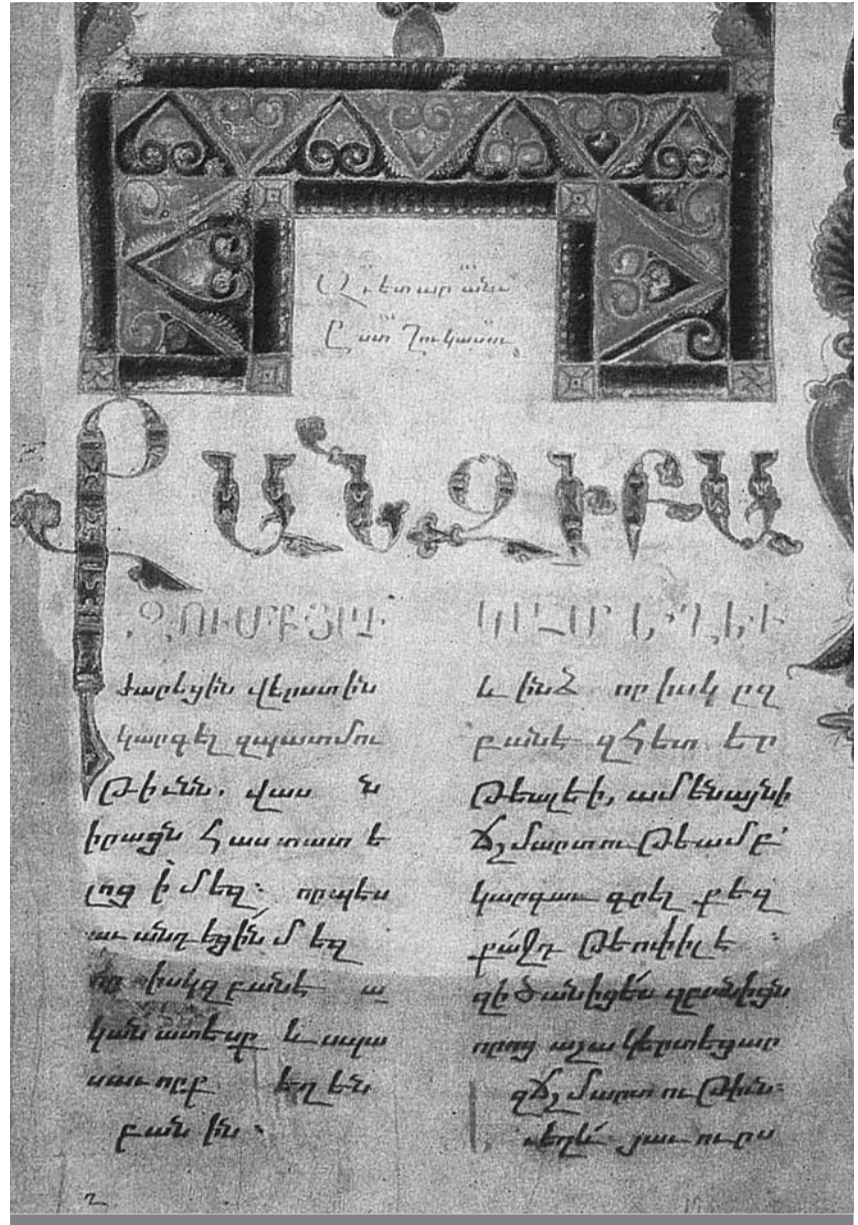 Աւետարան
Ըստ Ղուկասու
ՔԱՆԶԻ ԲԱ
ԶՈՒՄՔ ՅԱՒ
ժարեցին վերստին
կարգել զպատմու
թիւնն. վասն
իրացն հաստատե
լոց ի մեզ։ որպես
աւանդեցին մեզ
որ իսկզբանե ա
կանատեսք և սպա
սաւորք եղեն
բանին։
ԿԱՄ ԵՂԵՒ
և ինձ որ իսկ ըզ
բանե զհետ եր
թեալ եի, ամենայնի
ճշմարտութեամբ
կարգաւ գրել քեզ
քաջդ Թեոփիլե։
զի ծանիցես զբանիցն
որոց աշակերտեցար
զճշմարտութիւն։
եղև յաւուրս